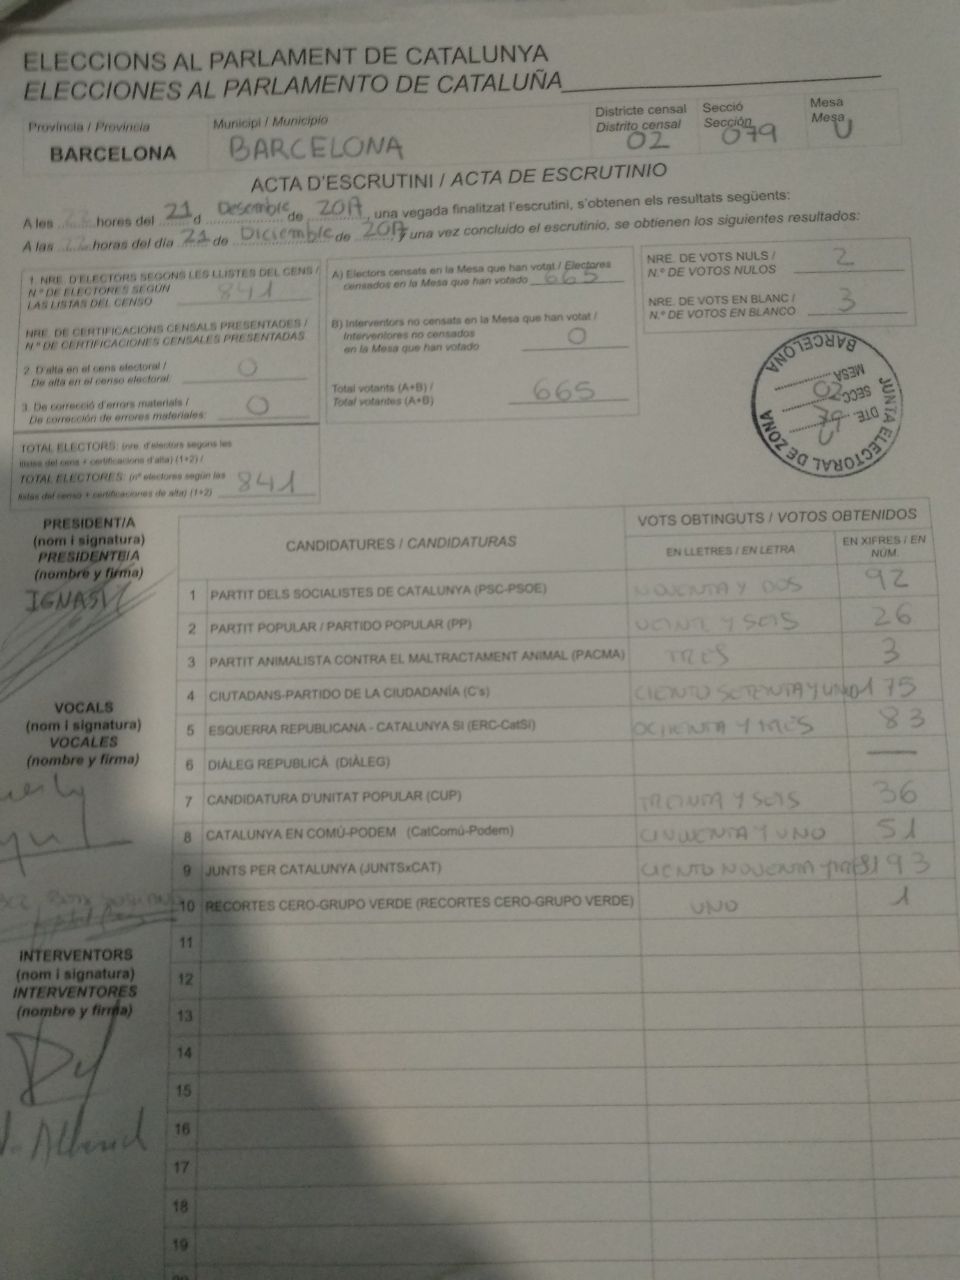 ELECCIONS AL PARLAMENT DE CATALUNYA
ELECCIONES AL PARLAMENTO DE CATALUÑA
Província / Provincia
BARCELONA
Municipi / Municipio
BARCELONA
Districte censal
Distrito censal
02
Secció
Sección
079
Mesa
Mesa
U
ACTA D'ESCRUTINI / ACTA DE ESCRUTINIO
A les hores del 21 d Desembre de 2017, una vegada finalitzat l'escrutini, s'obtenen els resultats següents:
A las horas del día 21 de Diciembre de 2017 y una vez concluido el escrutinio, se obtienen los siguientes resultados:
1. NRE. D'ELECTORS SEGONS LES LLISTES DEL CENS /
N.º DE ELECTORES SEGÚN
LAS LISTAS DEL CENSO 841
NRE. DE CERTIFICACIONS CENSALS PRESENTADES /
N.º DE CERTIFICACIONES CENSALES PRESENTADAS
2. D'alta en el cens electoral /
De alta en el censo electoral: 0
3. De correcció d'errors materials /
De corrección de errores materiales: 0
TOTAL ELECTORS: (nre. d'electors segons les
llistes del cens + certificacions d'alta) (1+2) /
TOTAL ELECTORES: (nº electores según las
listas del censo + certificaciones de alta) (1+2) 841
A) Electors censats en la Mesa que han votat / Electores
censados en la Mesa que han votado 665
B) Interventors no censats en la Mesa que han votat /
Interventores no censados
en la Mesa que han votado 0
Total votants (A+B) /
Total votantes (A+B) 665
NRE. DE VOTS NULS /
N.º DE VOTOS NULOS 2
NRE. DE VOTS EN BLANC /
N.º DE VOTOS EN BLANCO 3
JUNTA ELECTORAL DE ZONA
BARCELONA
DTE. 79
SECC. 02
MESA
U
PRESIDENT/A
(nom i signatura)
PRESIDENTE/A
(nombre y firma)
IGNASI
VOCALS
(nom i signatura)
VOCALES
(nombre y firma)
INTERVENTORS
(nom i signatura)
INTERVENTORES
(nombre y firma)
CANDIDATURES / CANDIDATURAS
VOTS OBTINGUTS / VOTOS OBTENIDOS
EN LLETRES / EN LETRA
EN XIFRES / EN NÚM.
1 PARTIT DELS SOCIALISTES DE CATALUNYA (PSC-PSOE) NOVENTA Y DOS 92
2 PARTIT POPULAR / PARTIDO POPULAR (PP) VEINTE Y SEIS 26
3 PARTIT ANIMALISTA CONTRA EL MALTRACTAMENT ANIMAL (PACMA) TRES 3
4 CIUTADANS-PARTIDO DE LA CIUDADANÍA (C's) CIENTO SETENTA Y UNO 175
5 ESQUERRA REPUBLICANA - CATALUNYA SÍ (ERC-CatSí) OCHENTA Y TRES 83
6 DIÀLEG REPUBLICÀ (DIÀLEG) —
7 CANDIDATURA D'UNITAT POPULAR (CUP) TRENTA Y SEIS 36
8 CATALUNYA EN COMÚ-PODEM (CatComú-Podem) CINCUENTA Y UNO 51
9 JUNTS PER CATALUNYA (JUNTSxCAT) CIENTO NOVENTA Y TRES 193
10 RECORTES CERO-GRUPO VERDE (RECORTES CERO-GRUPO VERDE) UNO 1
11
12
13
14
15
16
17
18
19